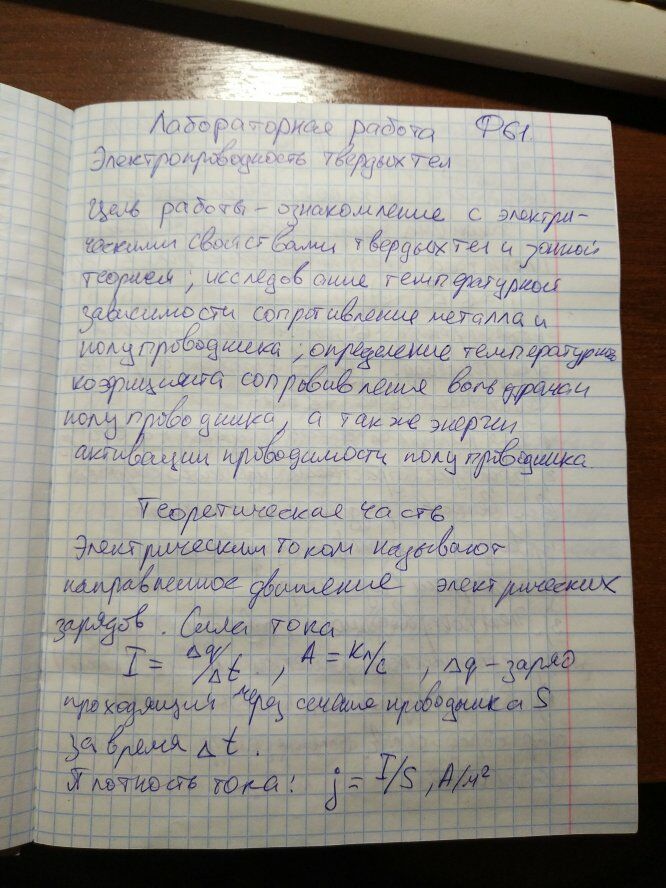 Лабораторная работа Ф61.
Электропроводность твердых тел
Цель работы - ознакомление с электри-
ческими свойствами твердых тел и зонной
теорией; исследование температурной
зависимости сопротивление металла и
полупроводника; определение температурно
коэфициента сопротивления вольфрама и
полупроводника, а также энергии
активации проводимости полупроводника.
Теоретическая часть
Электрическим током называют
направленное движение электрических
зарядов. Сила тока
I = Δq/Δt, A = Кл/с, Δq - заряд
проходящий через сечение проводника S
за время Δt.
Плотность тока: j = I/S, A/м²